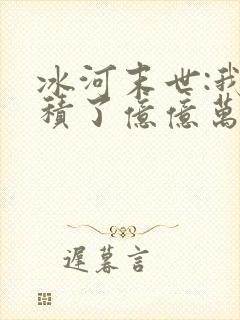 冰河末世:我
積了億億萬
遲暮言